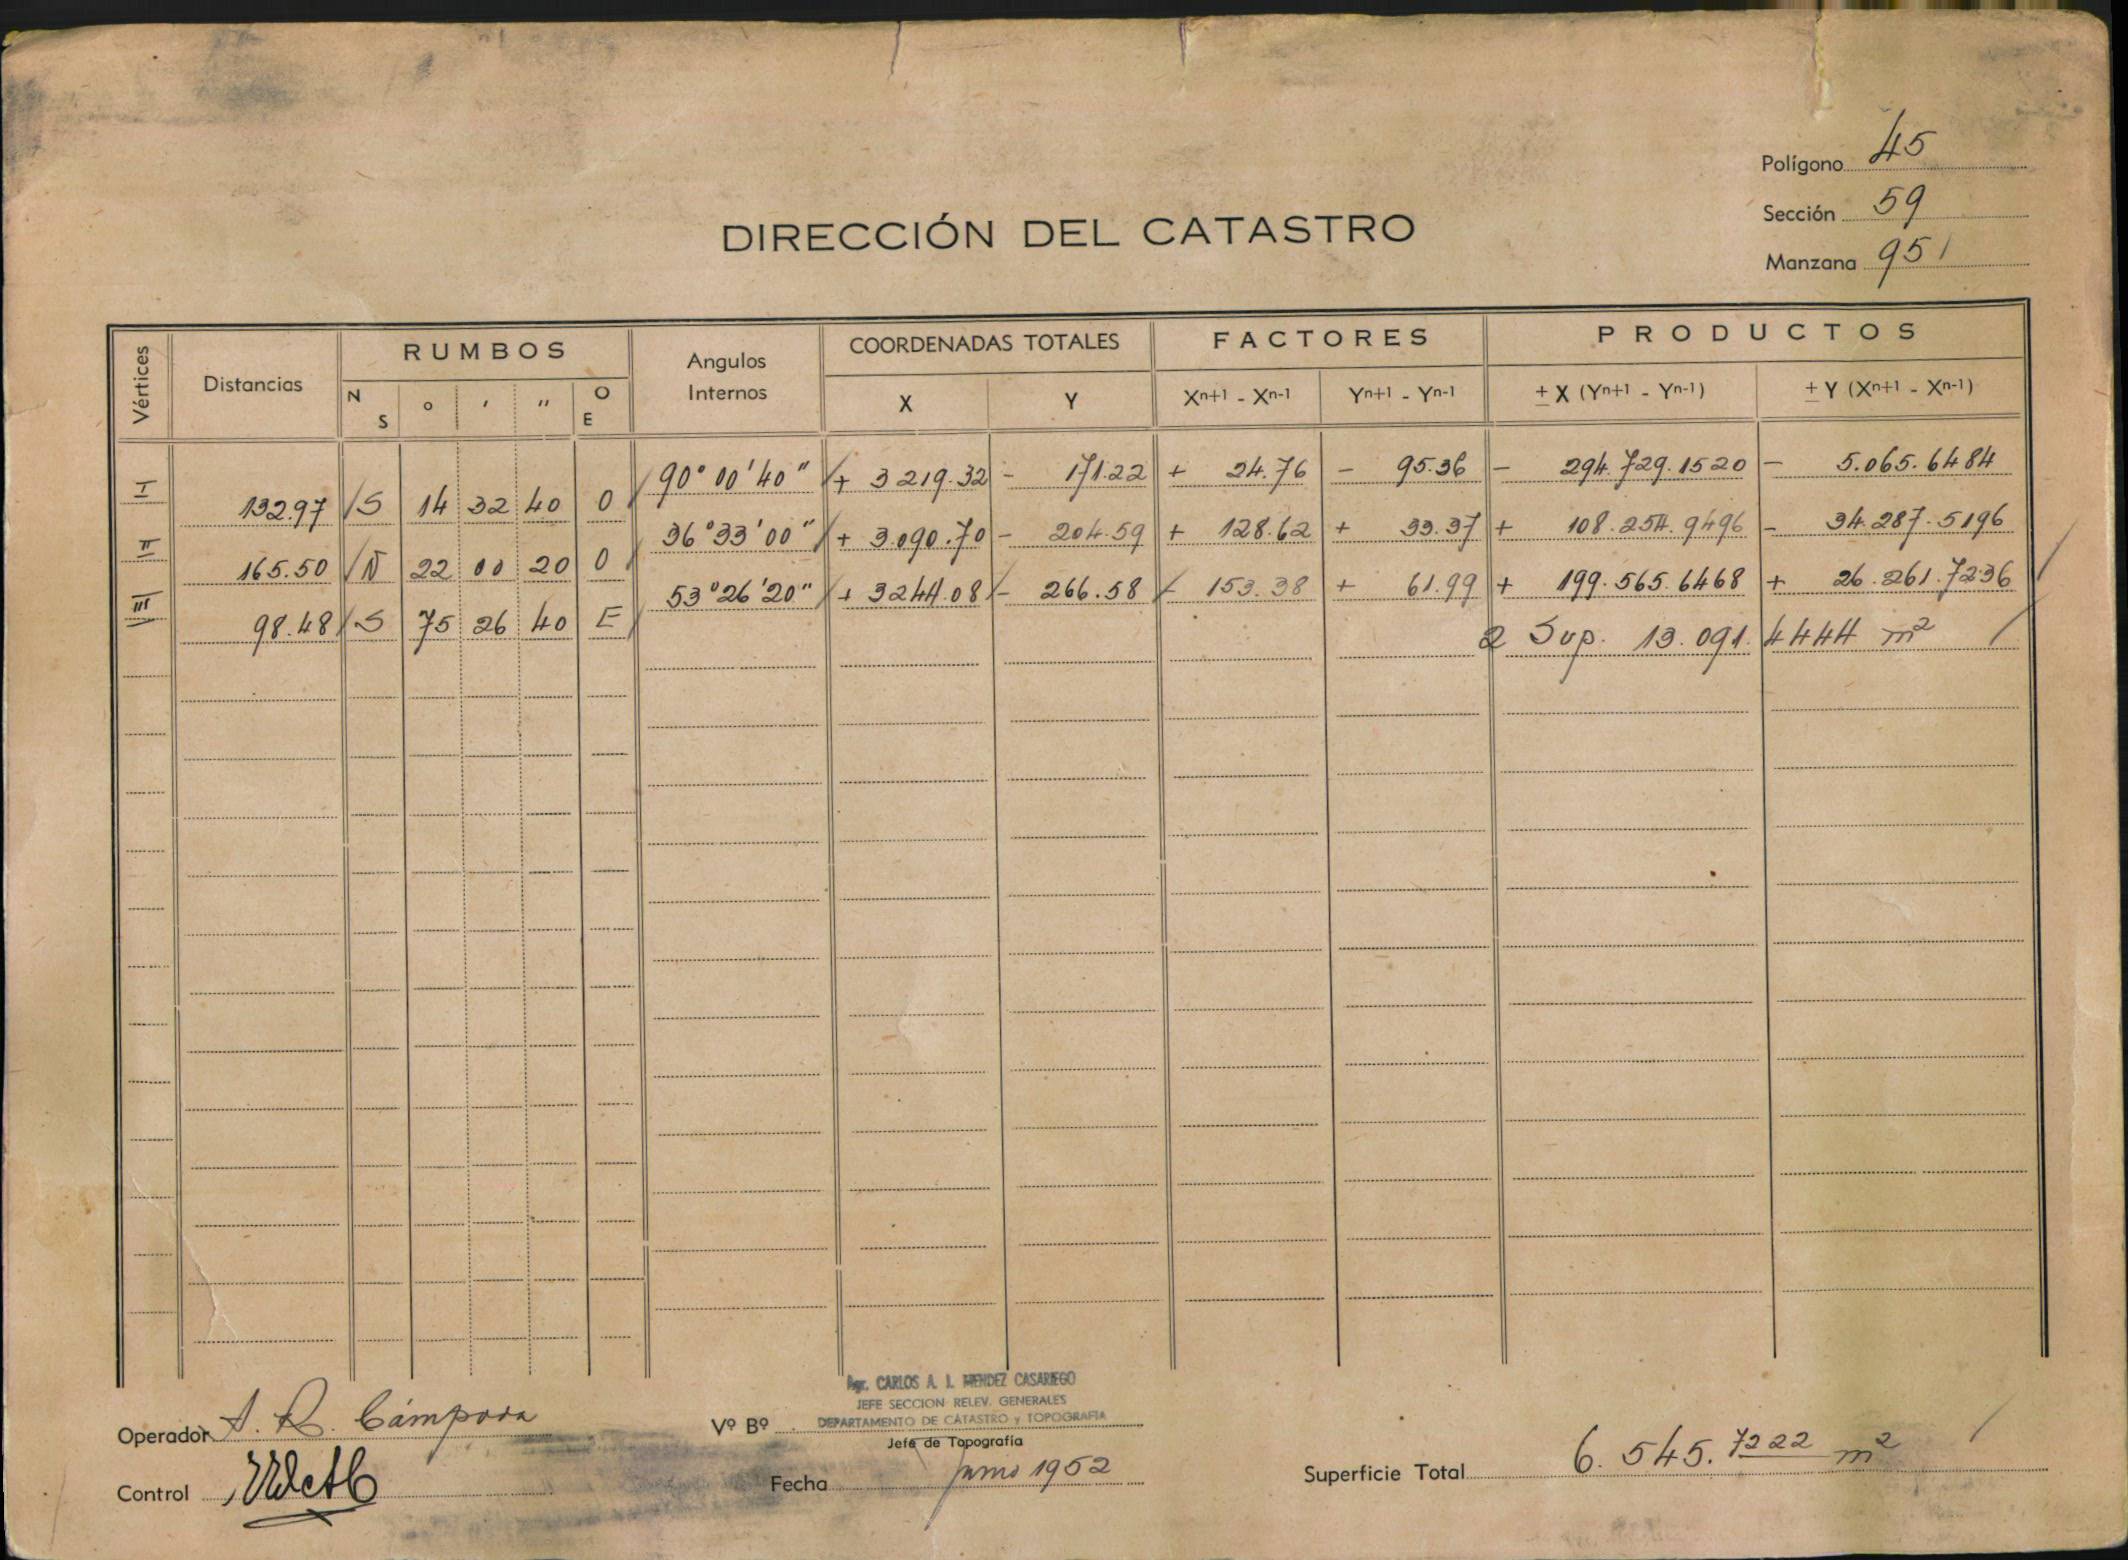 Polígono 45
Sección 59
Manzana 951
DIRECCIÓN DEL CATASTRO
Vértices Distancias RUMBOS Angulos Internos COORDENADAS TOTALES FACTORES PRODUCTOS
N S o ' " O E X Y Xn+1 - Xn-1 Yn+1 - Yn-1 ± X (Yn+1 - Yn-1) ± Y (Xn+1 - Xn-1)
90° 00' 40" + 3219.32 - 171.22 + 24.76 - 95.36 - 294.729.1520 - 5.065.6484
I 132.97 S 14 32 40 O
36° 33' 00" + 3.090.70 - 204.59 + 128.62 + 33.37 + 108.254.9496 - 34.287.5196
II 165.50 N 22 00 20 O
53° 26' 20" + 3244.08 - 266.58 - 153.38 + 61.99 + 199.565.6468 + 26.261.7236
III 98.48 S 75 26 40 E
2 Sup. 13.091.4444 m²
Agr. CARLOS A. J. MENDEZ CASARIEGO
JEFE SECCION RELEV. GENERALES
DEPARTAMENTO DE CATASTRO y TOPOGRAFIA
Operador A. R. Cámpora
Vº Bº
Jefe de Topografía
Control
Fecha Junio 1952
Superficie Total 6.545.7222 m²